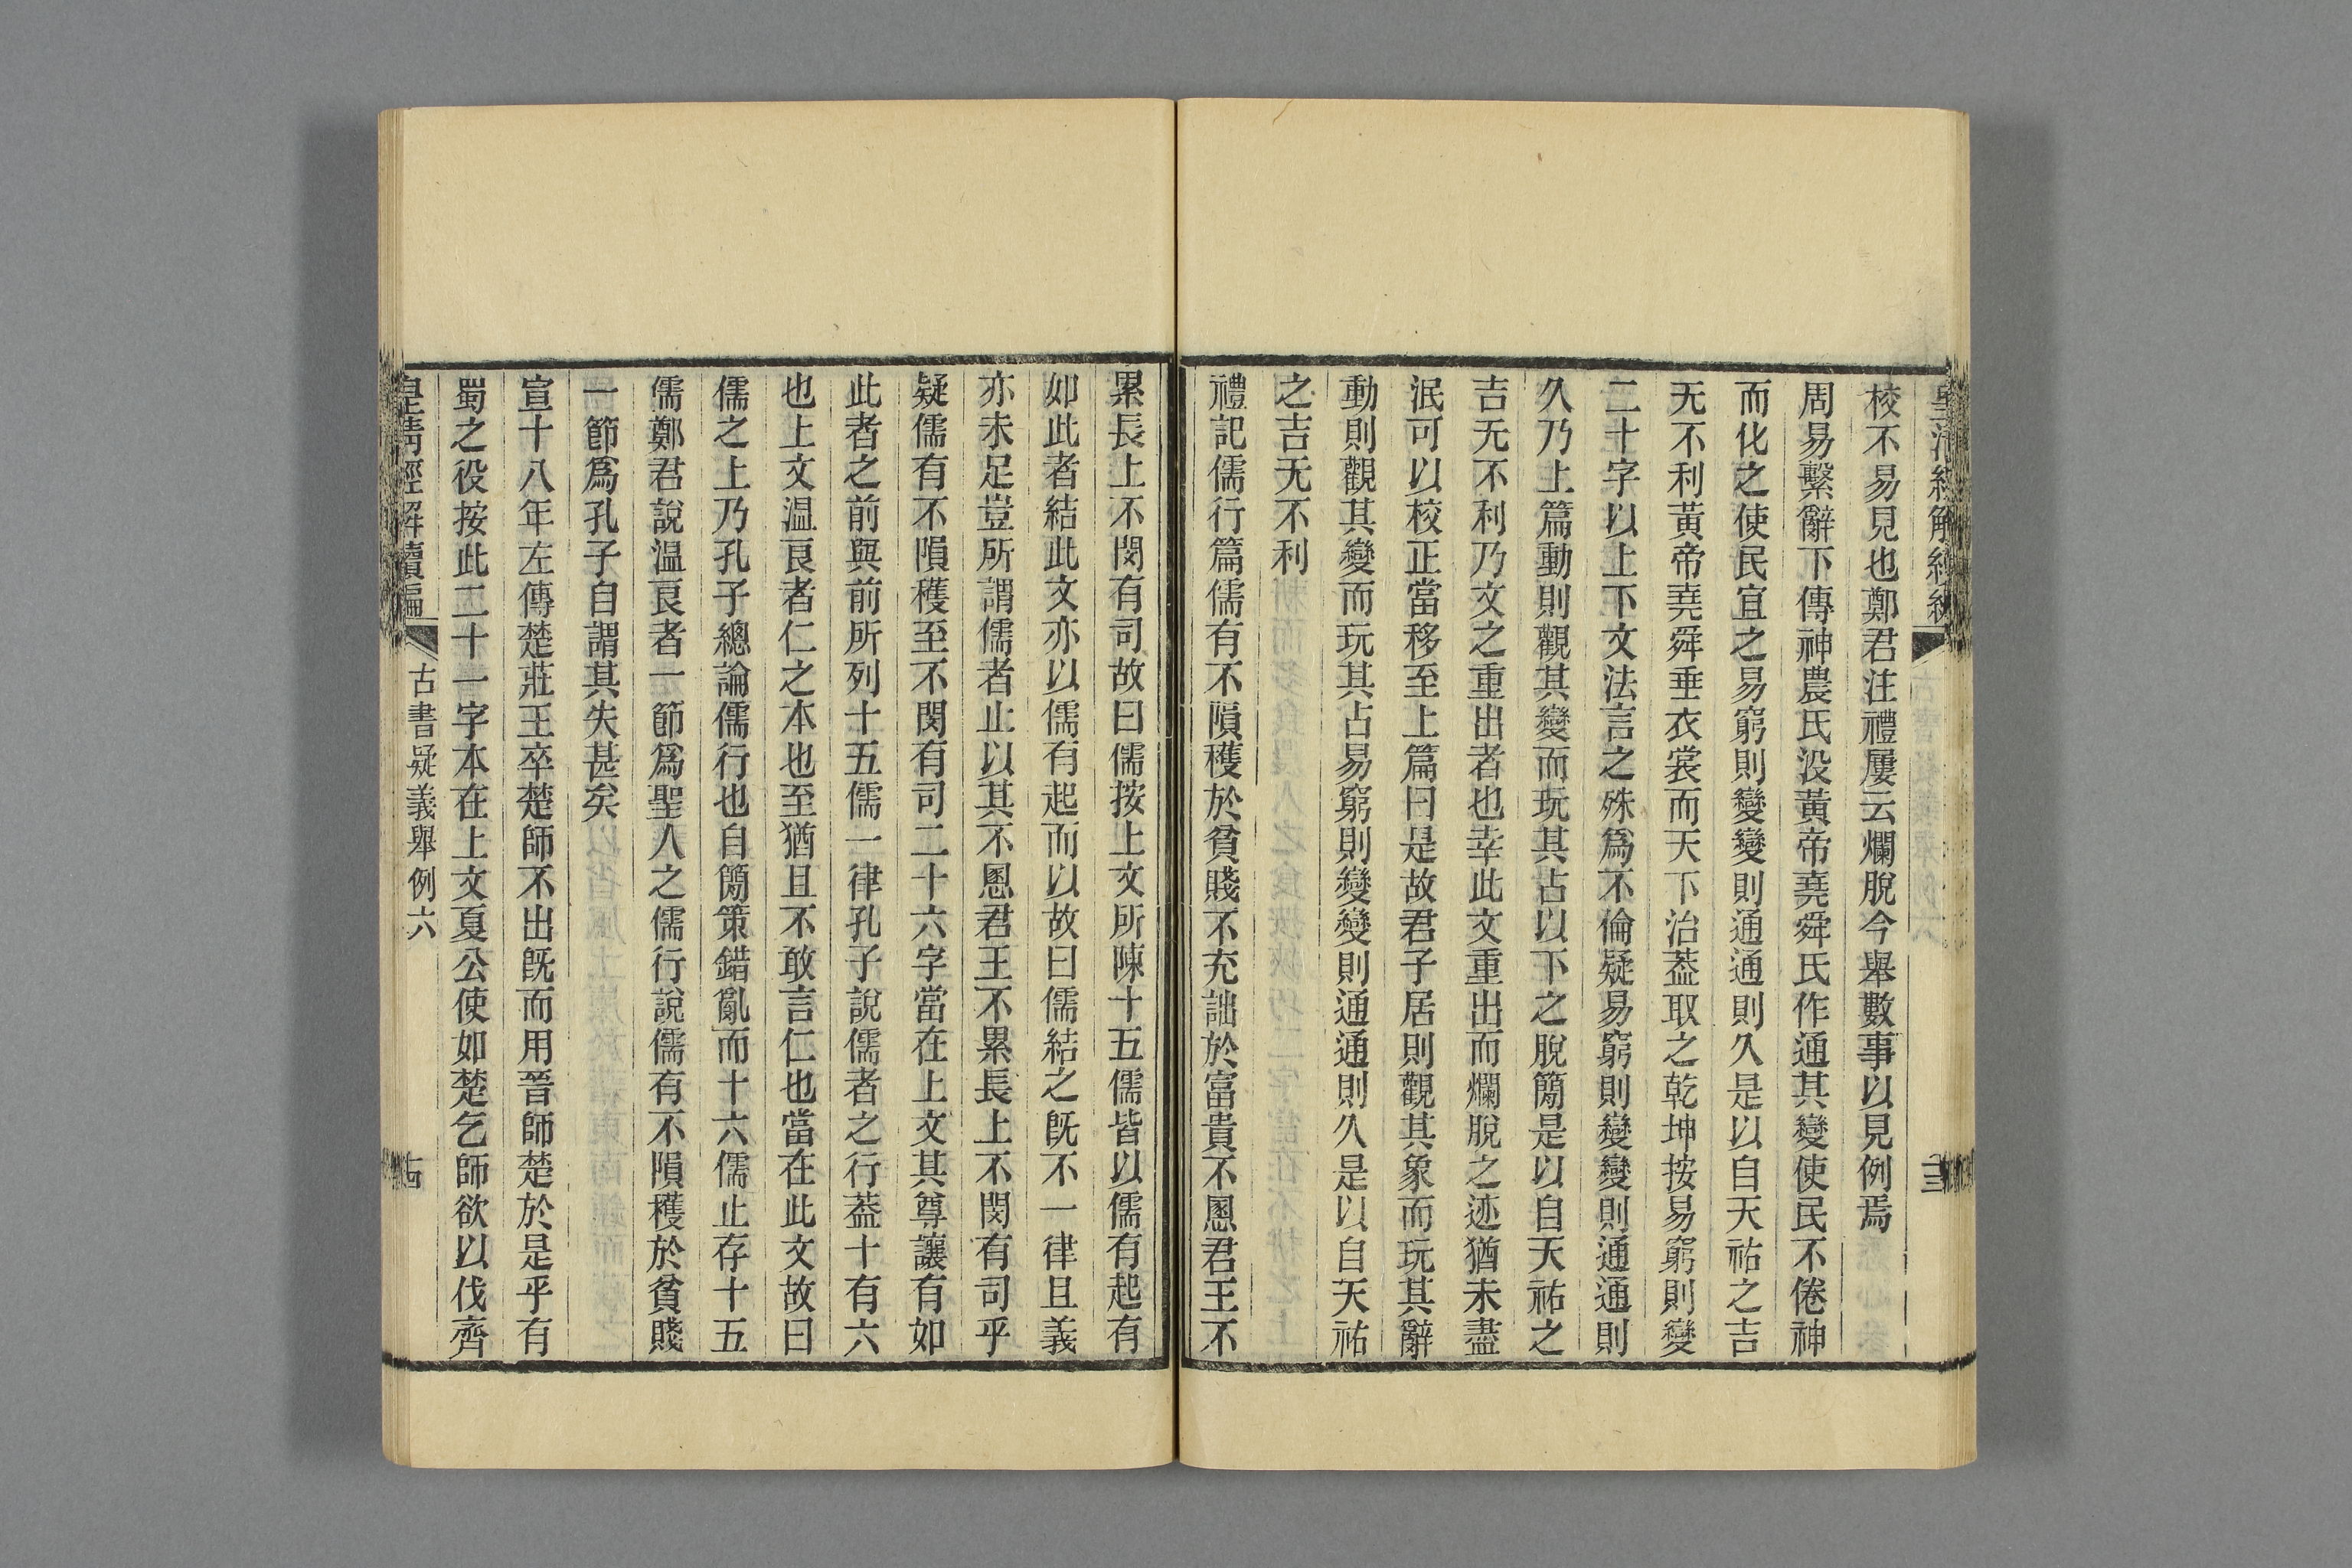 校不易見也鄭君注禮屢云爛脫今舉數事以見例焉
周易繫辭下傳神農氏沒黃帝堯舜氏作通其變使民不倦神
而化之使民宜之易窮則變變則通通則久是以自天祐之吉
无不利黃帝堯舜垂衣裳而天下治葢取之乾坤按易窮則變
二十字以上下文法言之殊爲不倫疑易窮則變變則通通則
久乃上篇動則觀其變而玩其占以下之脫簡是以自天祐之
吉无不利乃文之重出者也幸此文重出而爛脫之迹猶未盡
泯可以校正當移至上篇曰是故君子居則觀其象而玩其辭
動則觀其變而玩其占易窮則變變則通通則久是以自天祐
之吉无不利
禮記儒行篇儒有不隕穫於貧賤不充詘於富貴不慁君王不
累長上不閔有司故曰儒按上文所陳十五儒皆以儒有起有
如此者結此文亦以儒有起而以故曰儒結之旣不一律且義
亦未足豈所謂儒者止以其不慁君王不累長上不閔有司乎
疑儒有不隕穫至不閔有司二十六字當在上文其尊讓有如
此者之前與前所列十五儒一律孔子說儒者之行葢十有六
也上文溫良者仁之本也至猶且不敢言仁也當在此文故曰
儒之上乃孔子總論儒行也自簡策錯亂而十六儒止存十五
儒鄭君說溫良者一節爲聖人之儒行說儒有不隕穫於貧賤
一節爲孔子自謂其失甚矣
宣十八年左傳楚莊王卒楚師不出旣而用晉師楚於是乎有
蜀之役按此二十一字本在上文夏公使如楚乞師欲以伐齊
皇清經解續編 古書疑義舉例六 十四